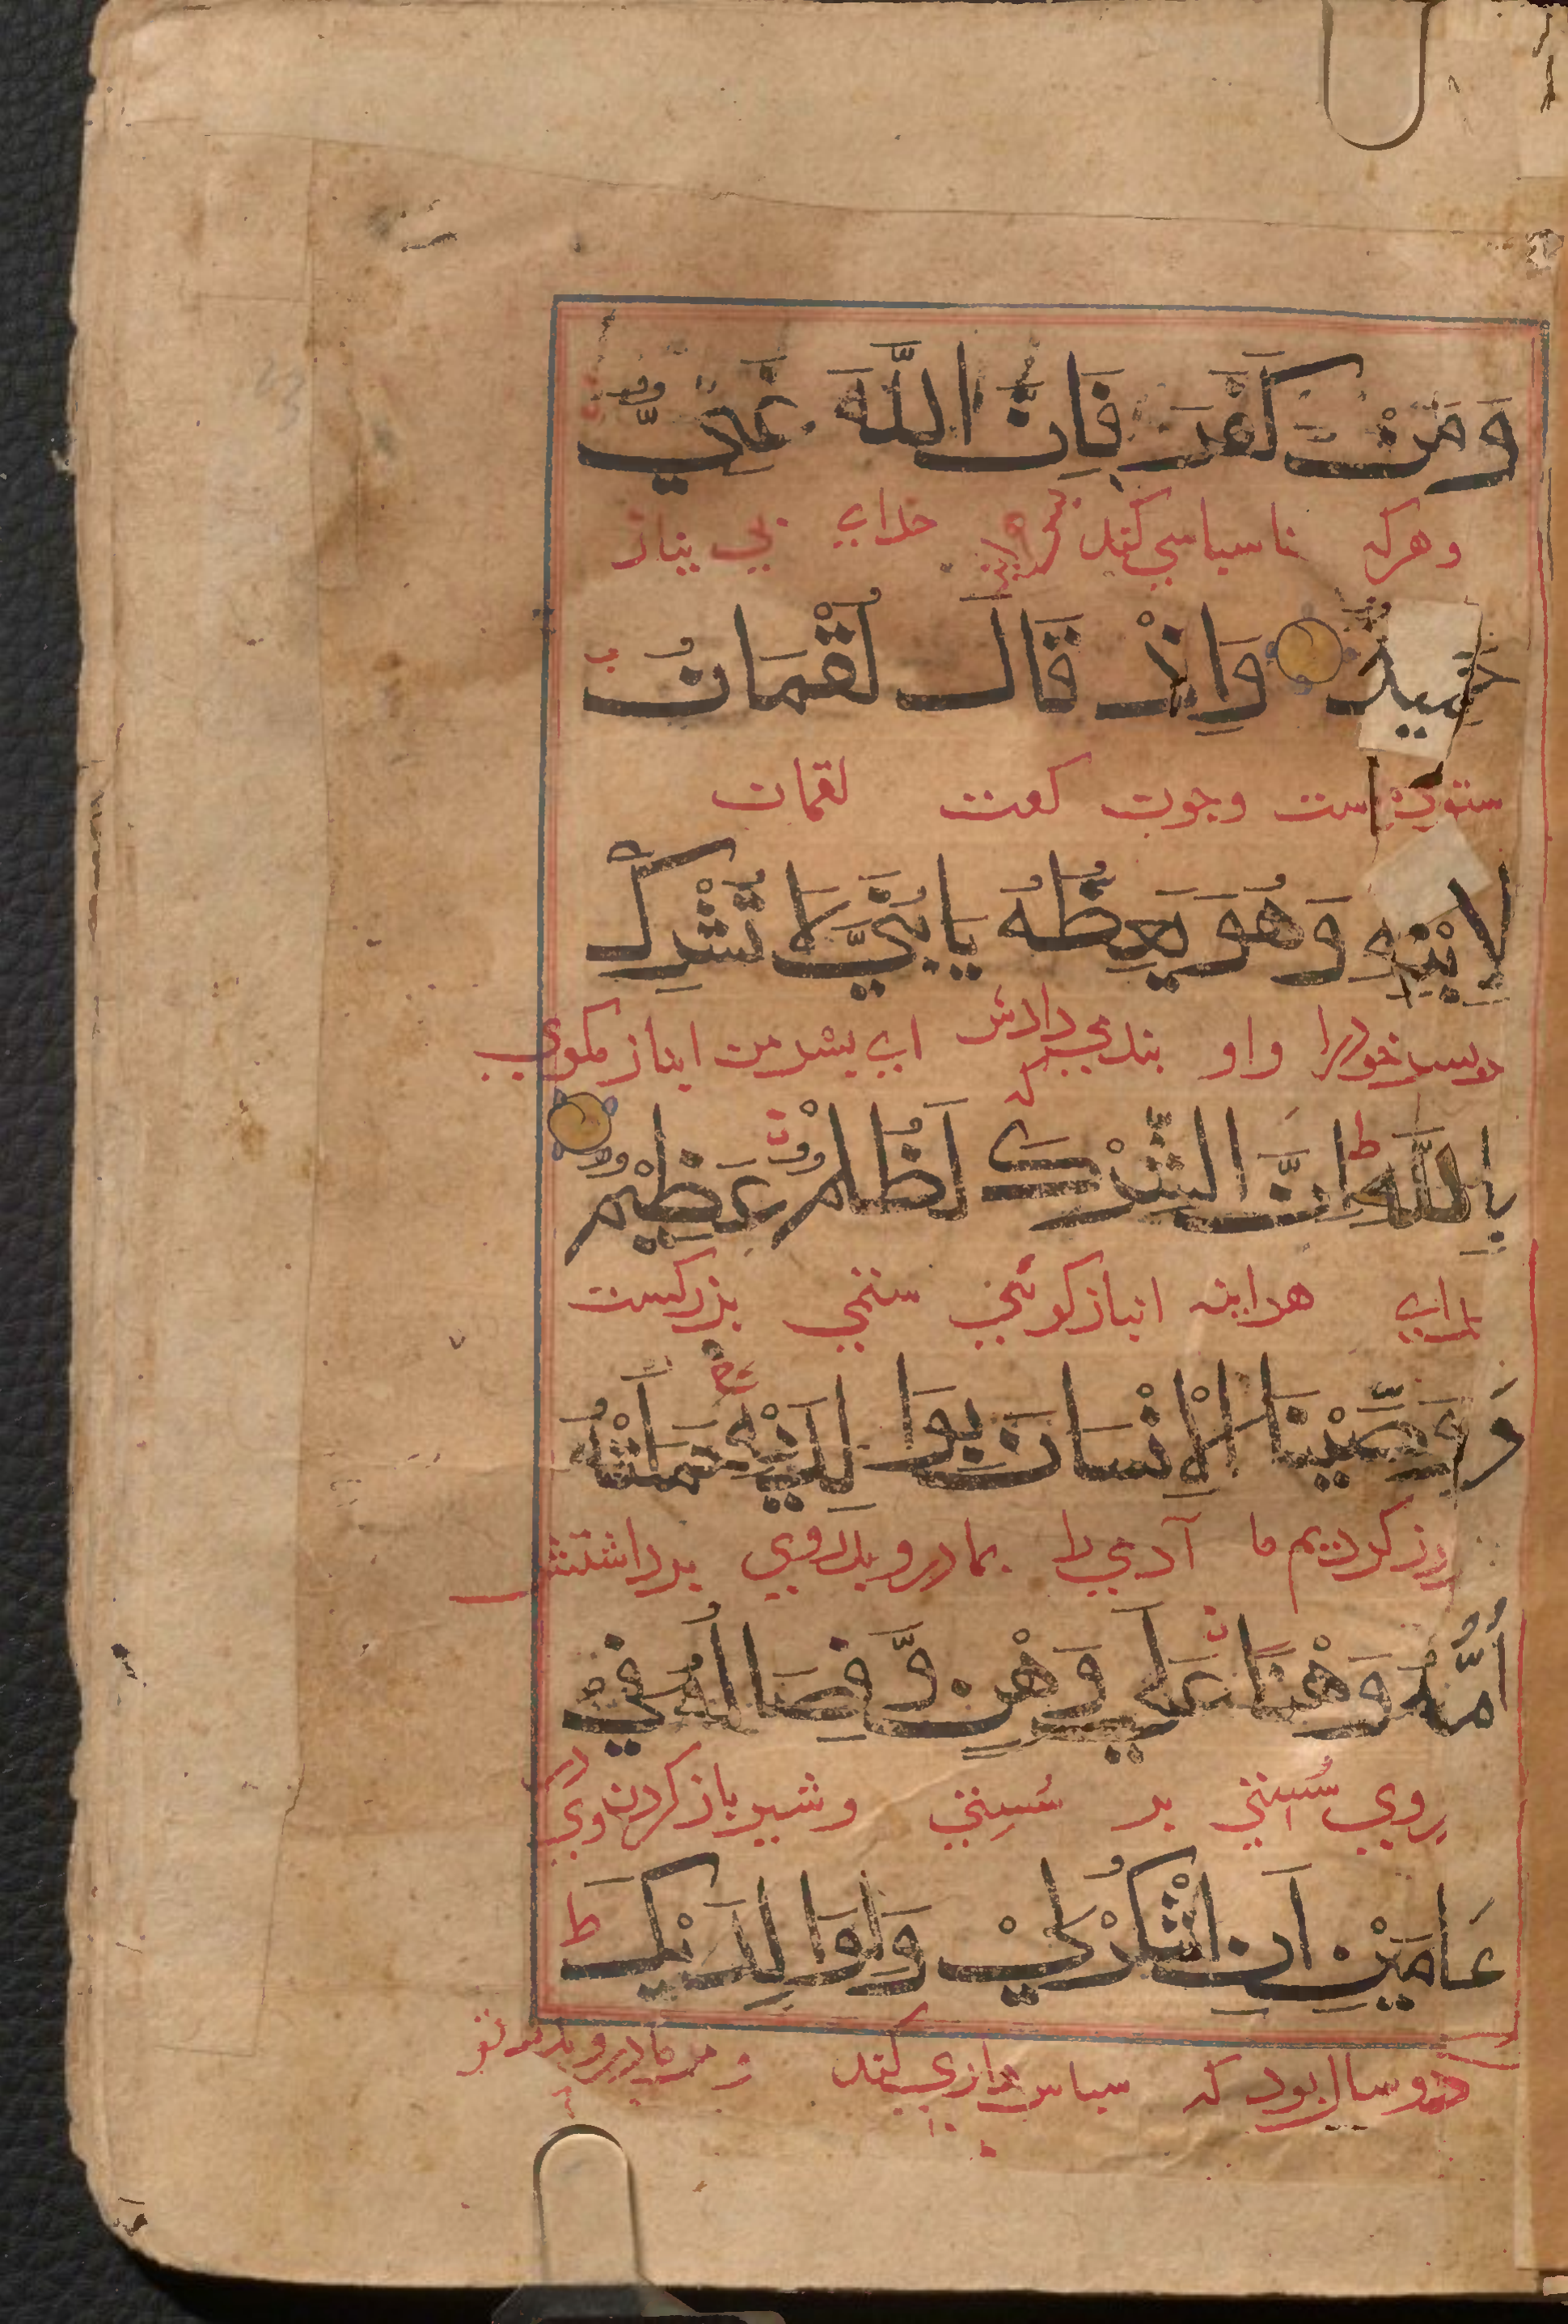 وَمَنْ كَفَرَ فَاِنَّ اللَّهَ غَنِيٌّ
وهرکه ناسباسي کند خداي بي نياز
حَمِيدٌ وَاِذْ قَالَ لُقْمَانُ
ستوده است وجون کفت لقمان
لِابْنِهِ وَهُوَ يَعِظُهُ يَابُنَيَّ لَا تُشْرِكْ
بسر خودرا واو بند مي دادش اي بسر من انباز مكوي
بِاللَّهِ اِنَّ الشِّرْكَ لَظُلْمٌ عَظِيْمٌ
هراينه انباز كوئي ستمي بزركست
وَوَصَّيْنَا الْاِنْسَانَ بِوَا لِدَيْهِ حَمَلَتْهُ
كرديم ما آدمي را بمادر وبدر وي برداشتش
اُمُّهُ وَهْنًا عَلَي وَهْنٍ وَّفِصَالُهُ فِيْ
وي سُستي بر سُستي وشير باز كردن وي در
عَامَيْنِ اَنِ اشْكُرْلِيْ وَلِوَا لِدَيْكَ
دو سال بود كه سباس داري كند و مر مادر وبدر تو